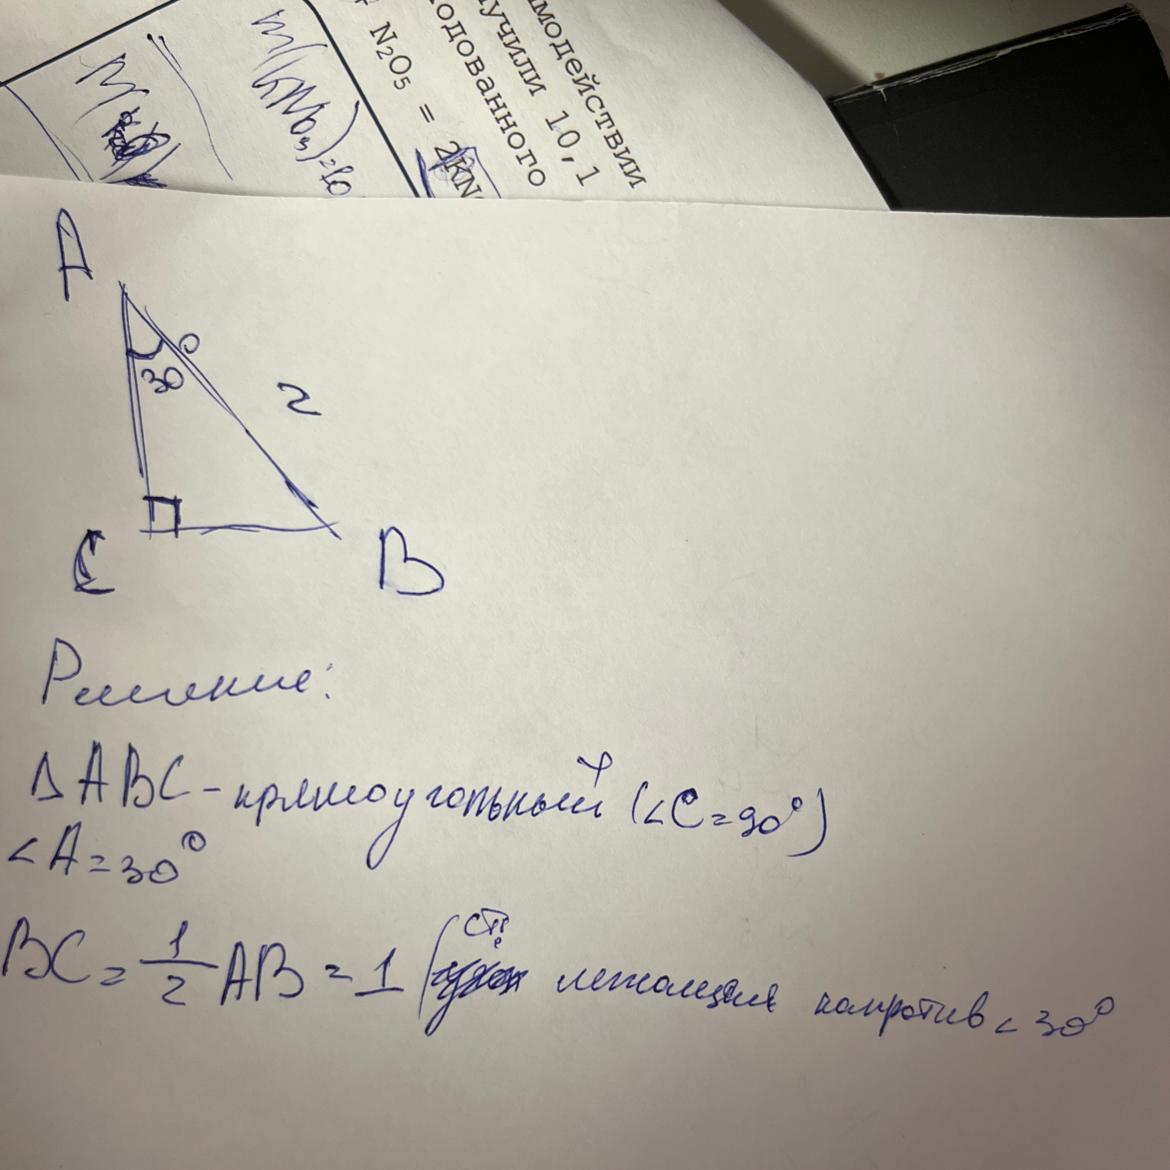 модействии
лучили 10,1
одованного
N₂O₅ = 2KN
m(KNO₃)=10
A
30°
2
C
B
Решение:
ΔABC - прямоугольный (<C=90°)
<A=30°
BC = 1/2 AB = 1 (ст. лежащая напротив < 30°